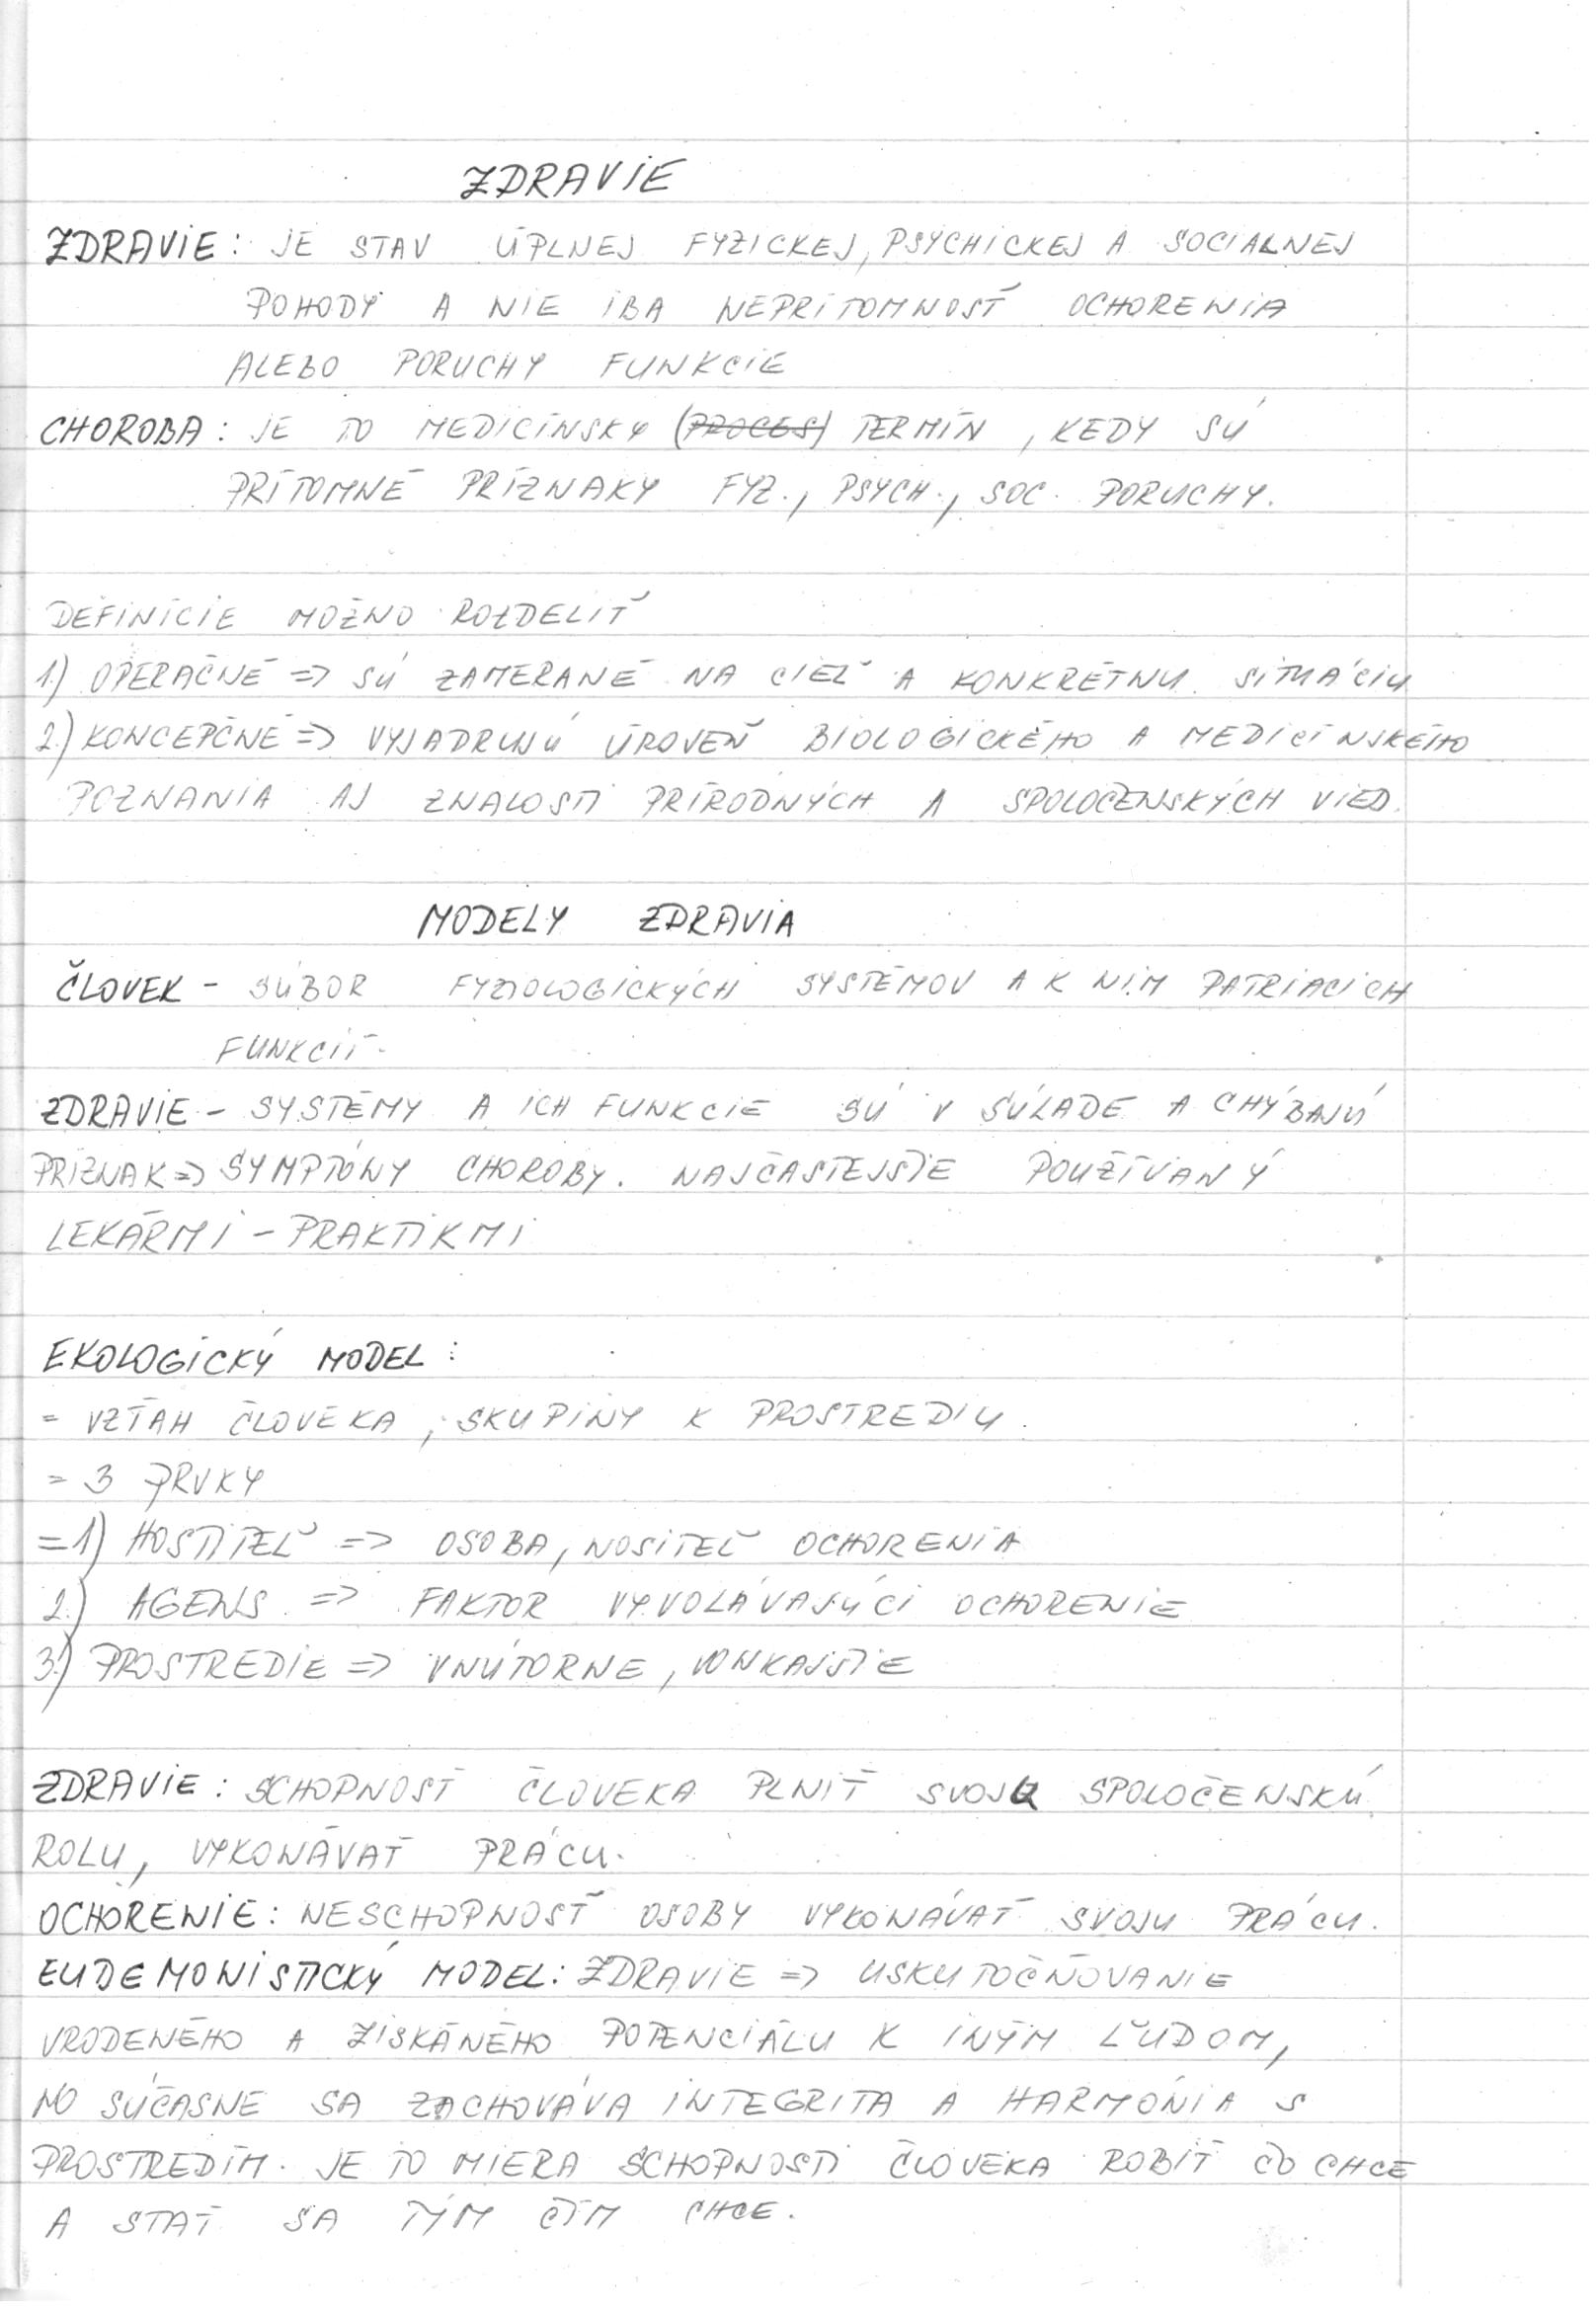 ZDRAVIE
ZDRAVIE: JE STAV ÚPLNEJ FYZICKEJ, PSYCHICKEJ A SOCIÁLNEJ
POHODY A NIE IBA NEPRÍTOMNOSŤ OCHORENIA
ALEBO PORUCHY FUNKCIE
CHOROBA: JE TO MEDICÍNSKY (PROCES) TERMÍN, KEDY SÚ
PRÍTOMNÉ PRÍZNAKY FYZ., PSYCH., SOC. PORUCHY.
DEFINÍCIE MOŽNO ROZDELIŤ
1.) OPERAČNÉ => SÚ ZAMERANÉ NA CIEĽ A KONKRÉTNU SITUÁCIU
2.) KONCEPČNÉ => VYJADRUJÚ ÚROVEŇ BIOLOGICKÉHO A MEDICÍNSKÉHO
POZNANIA AJ ZNALOSTI PRÍRODNÝCH A SPOLOČENSKÝCH VIED.
MODELY ZDRAVIA
ČLOVEK - SÚBOR FYZIOLOGICKÝCH SYSTÉMOV A K NIM PATRIACICH
FUNKCIÍ.
ZDRAVIE - SYSTÉMY A ICH FUNKCIE SÚ V SÚLADE A CHÝBAJÚ
PRÍZNAK => SYMPTÓNY CHOROBY. NAJČASTEJŠIE POUŽÍVANÝ
LEKÁRMI - PRAKTIKMI
EKOLOGICKÝ MODEL:
= VZŤAH ČLOVEKA, SKUPINY K PROSTREDIU.
= 3 PRVKY
= 1) HOSTITEĽ => OSOBA, NOSITEĽ OCHORENIA
2.) AGENS => FAKTOR VYVOLÁVAJÚCI OCHORENIE
3.) PROSTREDIE => VNÚTORNE, VONKAJŠIE
ZDRAVIE: SCHOPNOSŤ ČLOVEKA PLNIŤ SVOJU SPOLOČENSKÚ
ROLU, VYKONÁVAŤ PRÁCU.
OCHORENIE: NESCHOPNOSŤ OSOBY VYKONÁVAŤ SVOJU PRÁCU.
EUDEMONISTICKÝ MODEL: ZDRAVIE => USKUTOČŇOVANIE
VRODENÉHO A ZÍSKANÉHO POTENCIÁLU K INÝM ĽUDOM,
NO SÚČASNE SA ZACHOVÁVA INTEGRITA A HARMÓNIA S
PROSTREDÍM. JE TO MIERA SCHOPNOSTI ČLOVEKA ROBIŤ ČO CHCE
A STAŤ SA TÝM ČÍM CHCE.